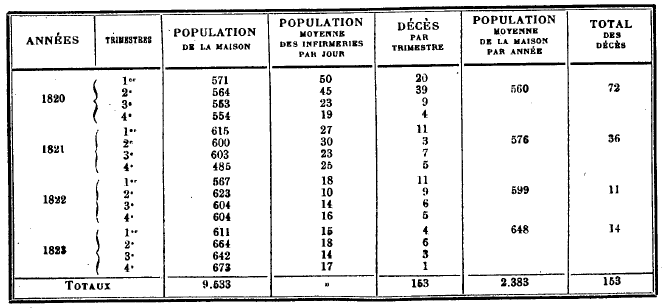 ANNÉES TRIMESTRES POPULATION DE LA MAISON POPULATION MOYENNE DES INFIRMERIES PAR JOUR DÉCÈS PAR TRIMESTRE POPULATION MOYENNE DE LA MAISON PAR ANNÉE TOTAL DES DÉCÈS
1820 1er 571 50 20 560 72
2e 564 45 39
3e 553 23 9
4e 554 19 4
1821 1er 615 27 11 576 36
2e 600 30 3
3e 603 23 7
4e 485 25 5
1822 1er 567 18 11 599 11
2e 623 10 9
3e 604 14 6
4e 604 16 5
1823 1er 611 15 4 648 14
2e 664 18 6
3e 642 14 3
4e 673 17 1
TOTAUX 9.533 » 153 2.383 153